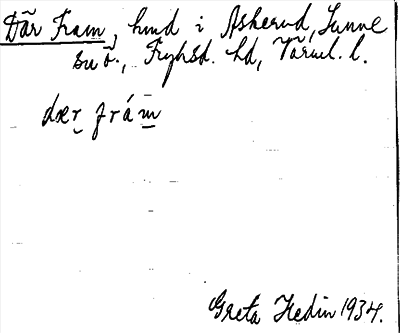 Där Fram, hmd i Askerud, Sunne
sn ö., Fryksd. hd, Värml. l.
dær frám
Greta Hedin 1934.